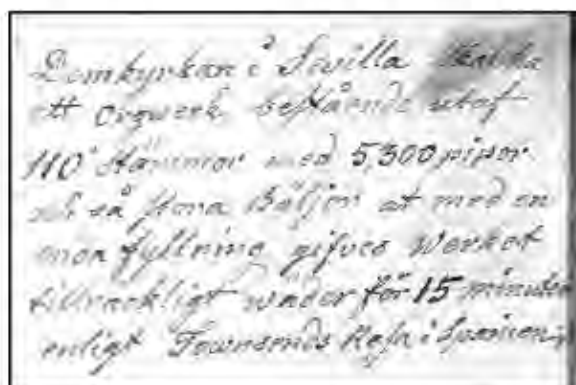 Domkyrkan i Sevilla
ett orgwerk, bestående utaf
110 stämmor med 5,300 pipor
och så stora Bäljor at med en
enda fyllning gifves Werket
tillräckligt wäder för 15 minuter
enligt Townsends Resa i Spanien